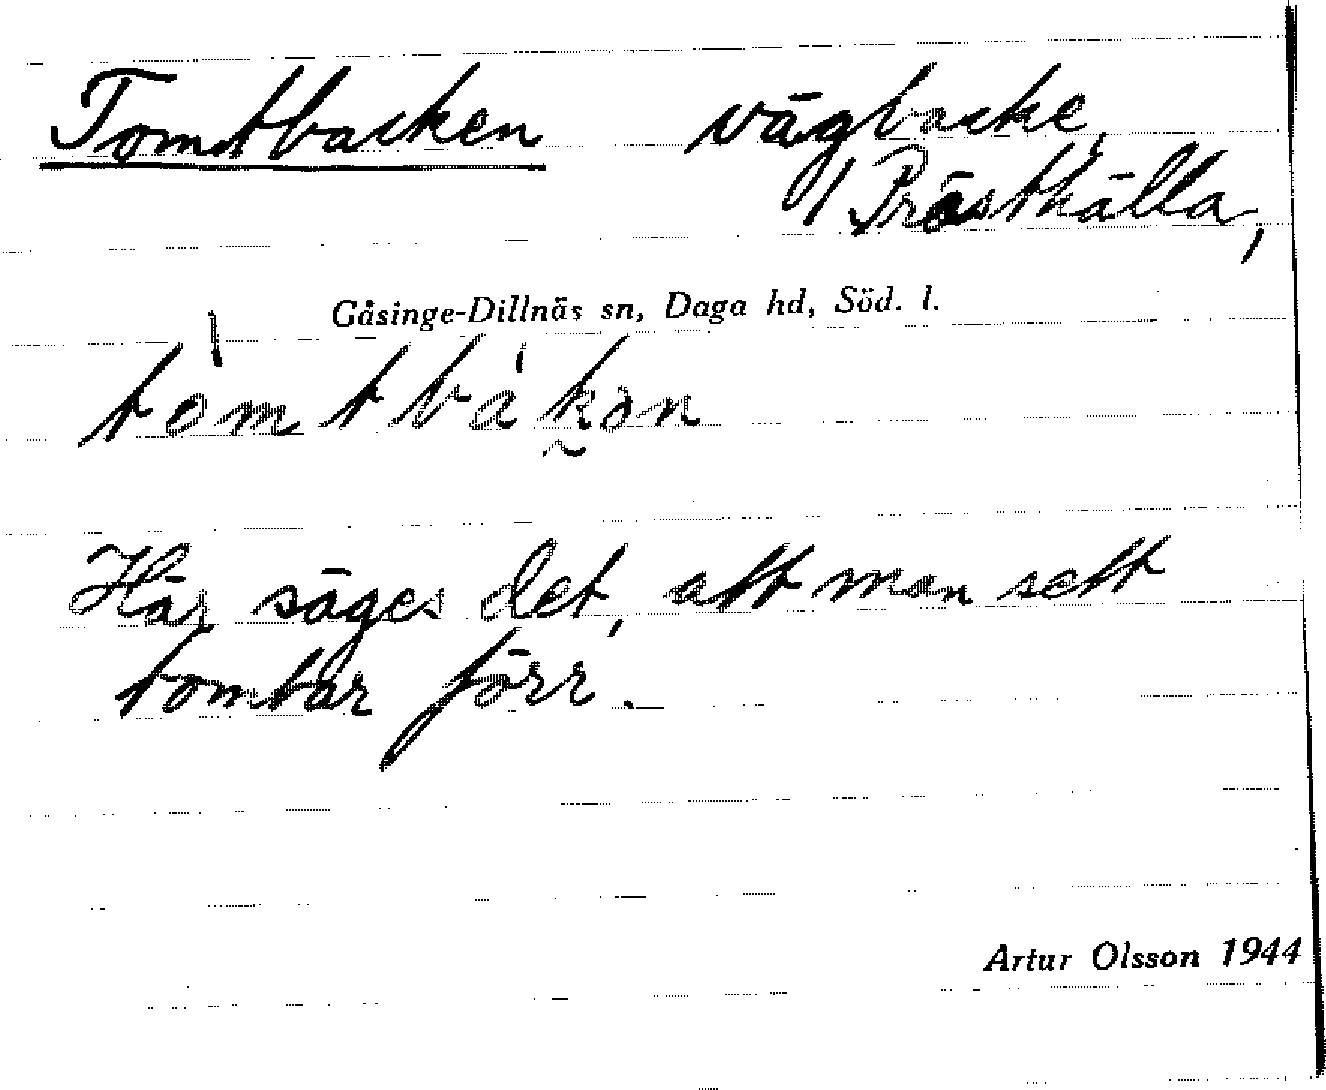 Tomtbacken vägbacke,
U Prästhälla,
Gåsinge-Dillnäs sn, Daga hd, Söd. l.
tòmtbákon
Här säges det, att man sett
tomtar förr.
Artur Olsson 1944